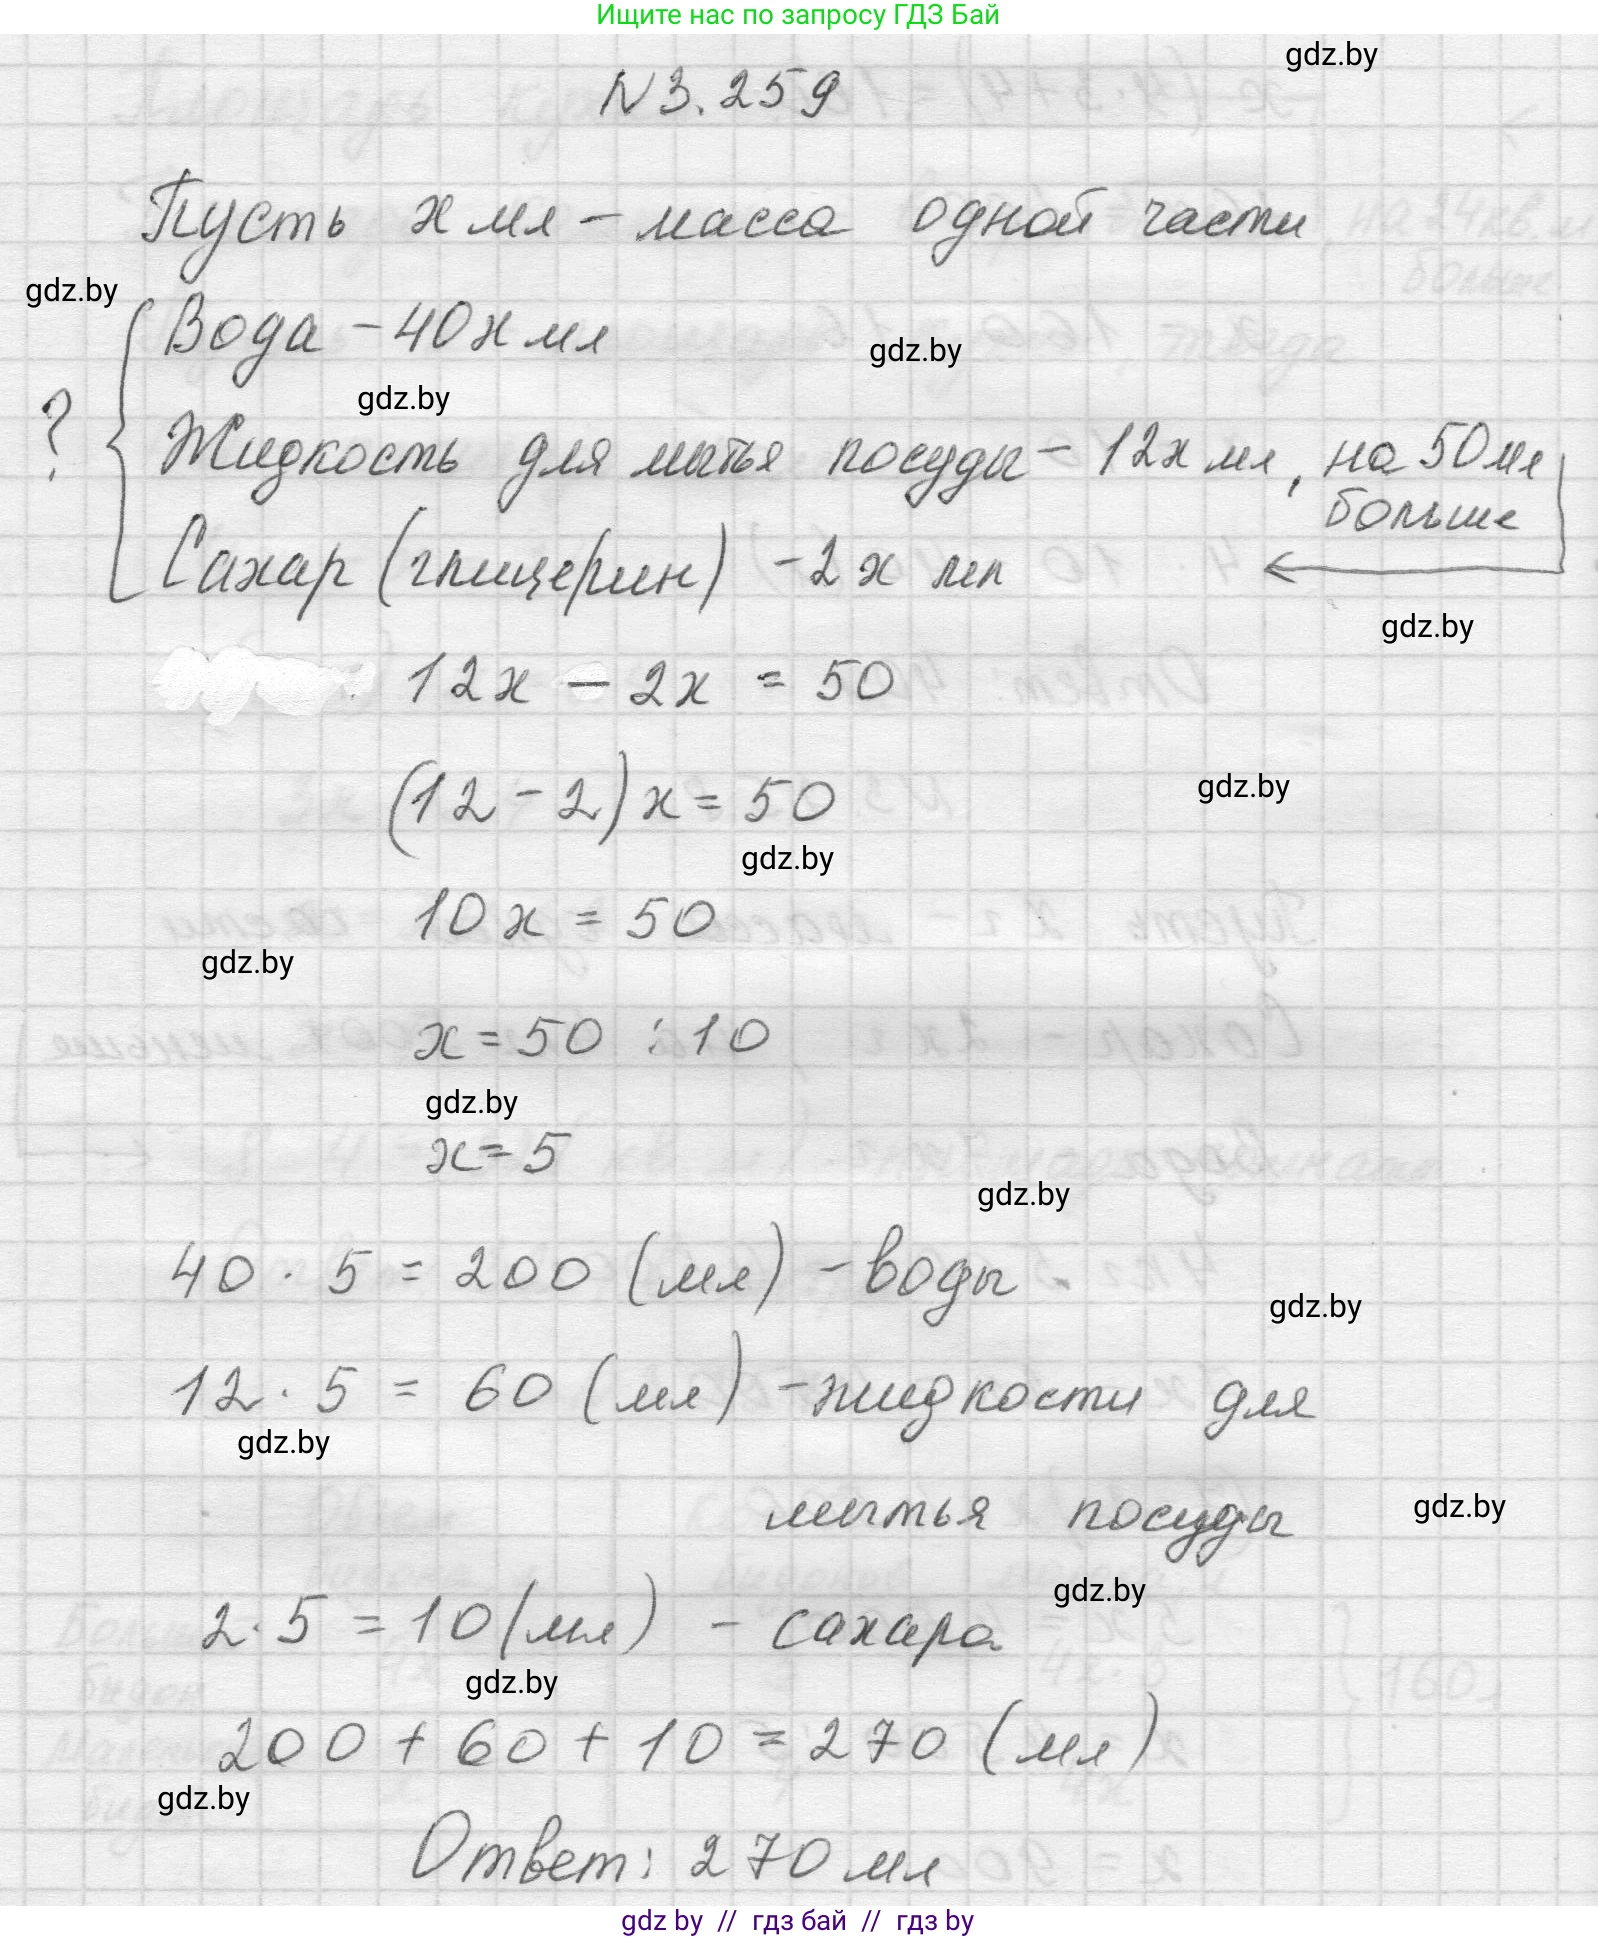 Ищите нас по запросу ГДЗ Бай
gdz.by
N 3.259
Пусть х мл – масса одной части
gdz.by
Вода – 40х мл
gdz.by
gdz.by
?
Жидкость для мытья посуды – 12х мл, на 50 мл
больше
Сахар (глицерин) – 2х мл
gdz.by
12х – 2х = 50
(12 – 2) х = 50
gdz.by
gdz.by
10х = 50
gdz.by
х = 50 : 10
gdz.by
х = 5
gdz.by
40 · 5 = 200 (мл) – воды
gdz.by
12 · 5 = 60 (мл) – жидкости для
gdz.by
мытья посуды
gdz.by
gdz.by
2 · 5 = 10 (мл) – сахара
gdz.by
200 + 60 + 10 = 270 (мл)
gdz.by
Ответ: 270 мл
gdz by // гдз бай // гдз by